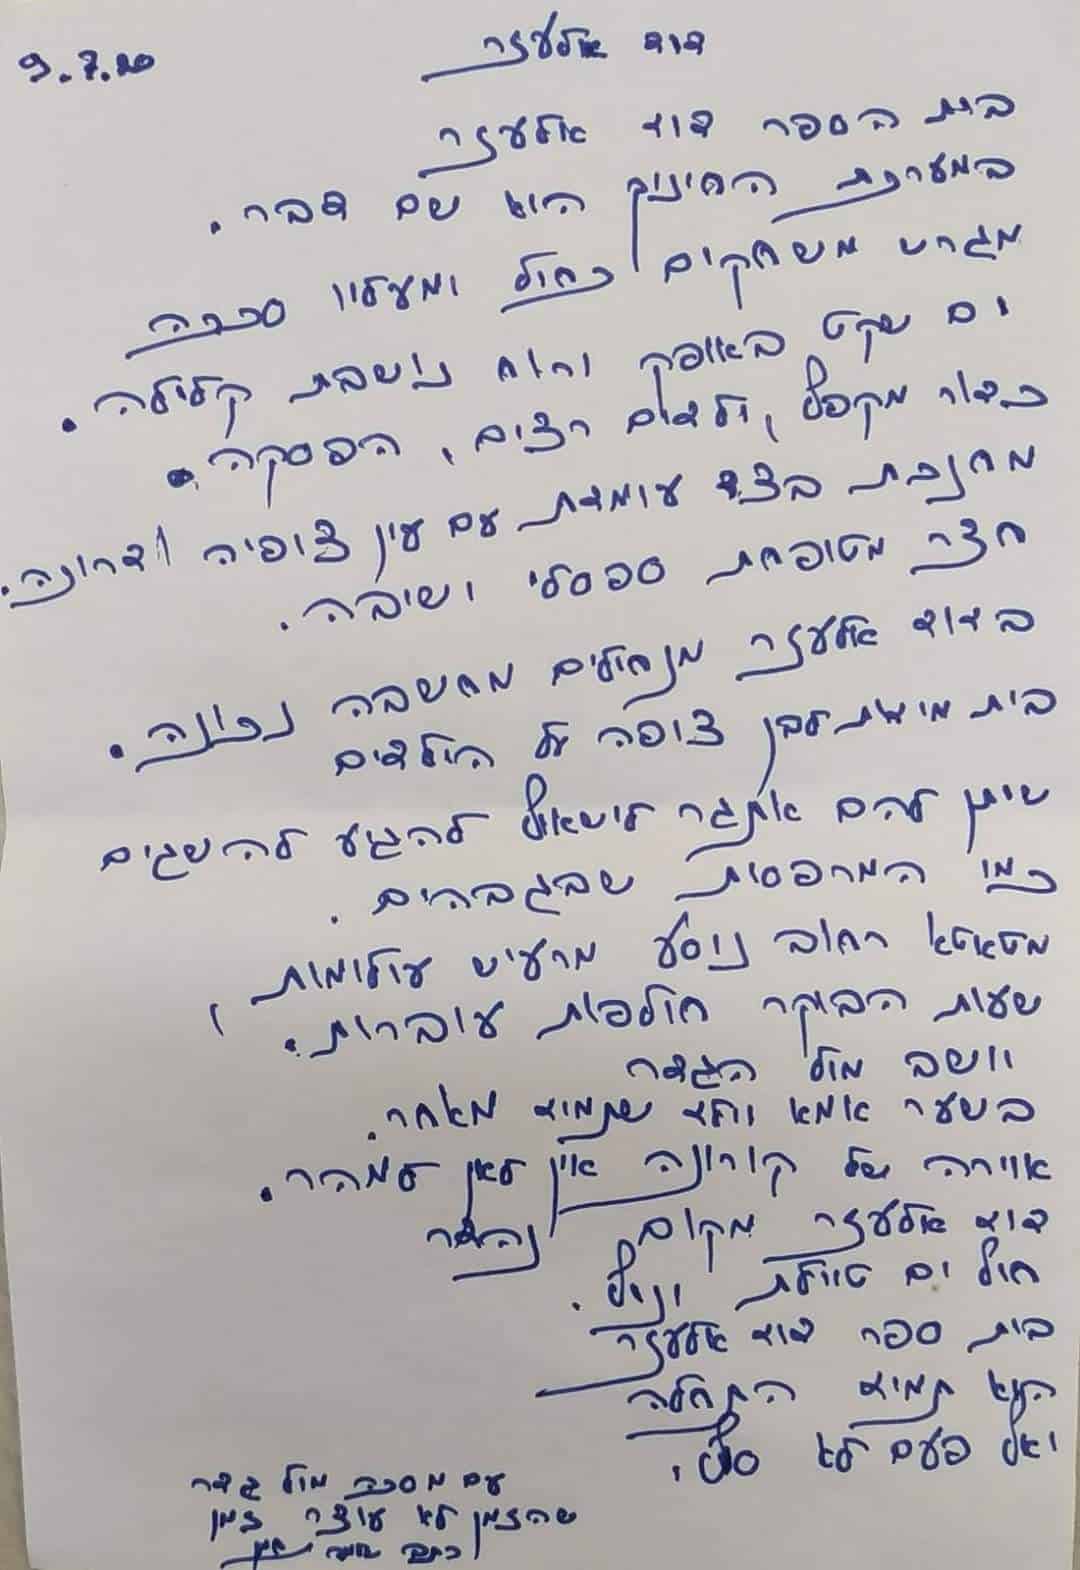 9.7.20
דוד אלעזר
בית הספר דוד אלעזר
במערכת החינוך הוא שם דבר.
מגרש משחקים כחול ומעליו סככה
ים שקט באופק ורוח נושבת קלילה.
כדור מקפץ, ילדים רצים, הפסקה.
מחנכת בצד עומדת עם עין צופיה ודרוכה.
חצר מטופחת ספסלי ישיבה.
בדוד אלעזר מנחילים מחשבה נכונה.
בית מידות לבן צופה על הילדים
שיתן להם אתגר לישאוף להגיע להשגים
כמו המרפסות שבגבהים.
מטאטא רחוב נוסע מרעיש עולומות,
שעות הבוקר חולפות עוברות.
יושב מול הגדר
בשער אמא וילד שתמיד מאחר.
אוירה של קורונה אין לאן למהר.
דוד אלעזר מקום נהדר
חול ים טיילת ונוף.
בית ספר דוד אלעזר
הוא תמיד התחלה
ואף פעם לא סוף.
עם מסכה מול גדר
שהזמן לא עוצר זמן
כתב